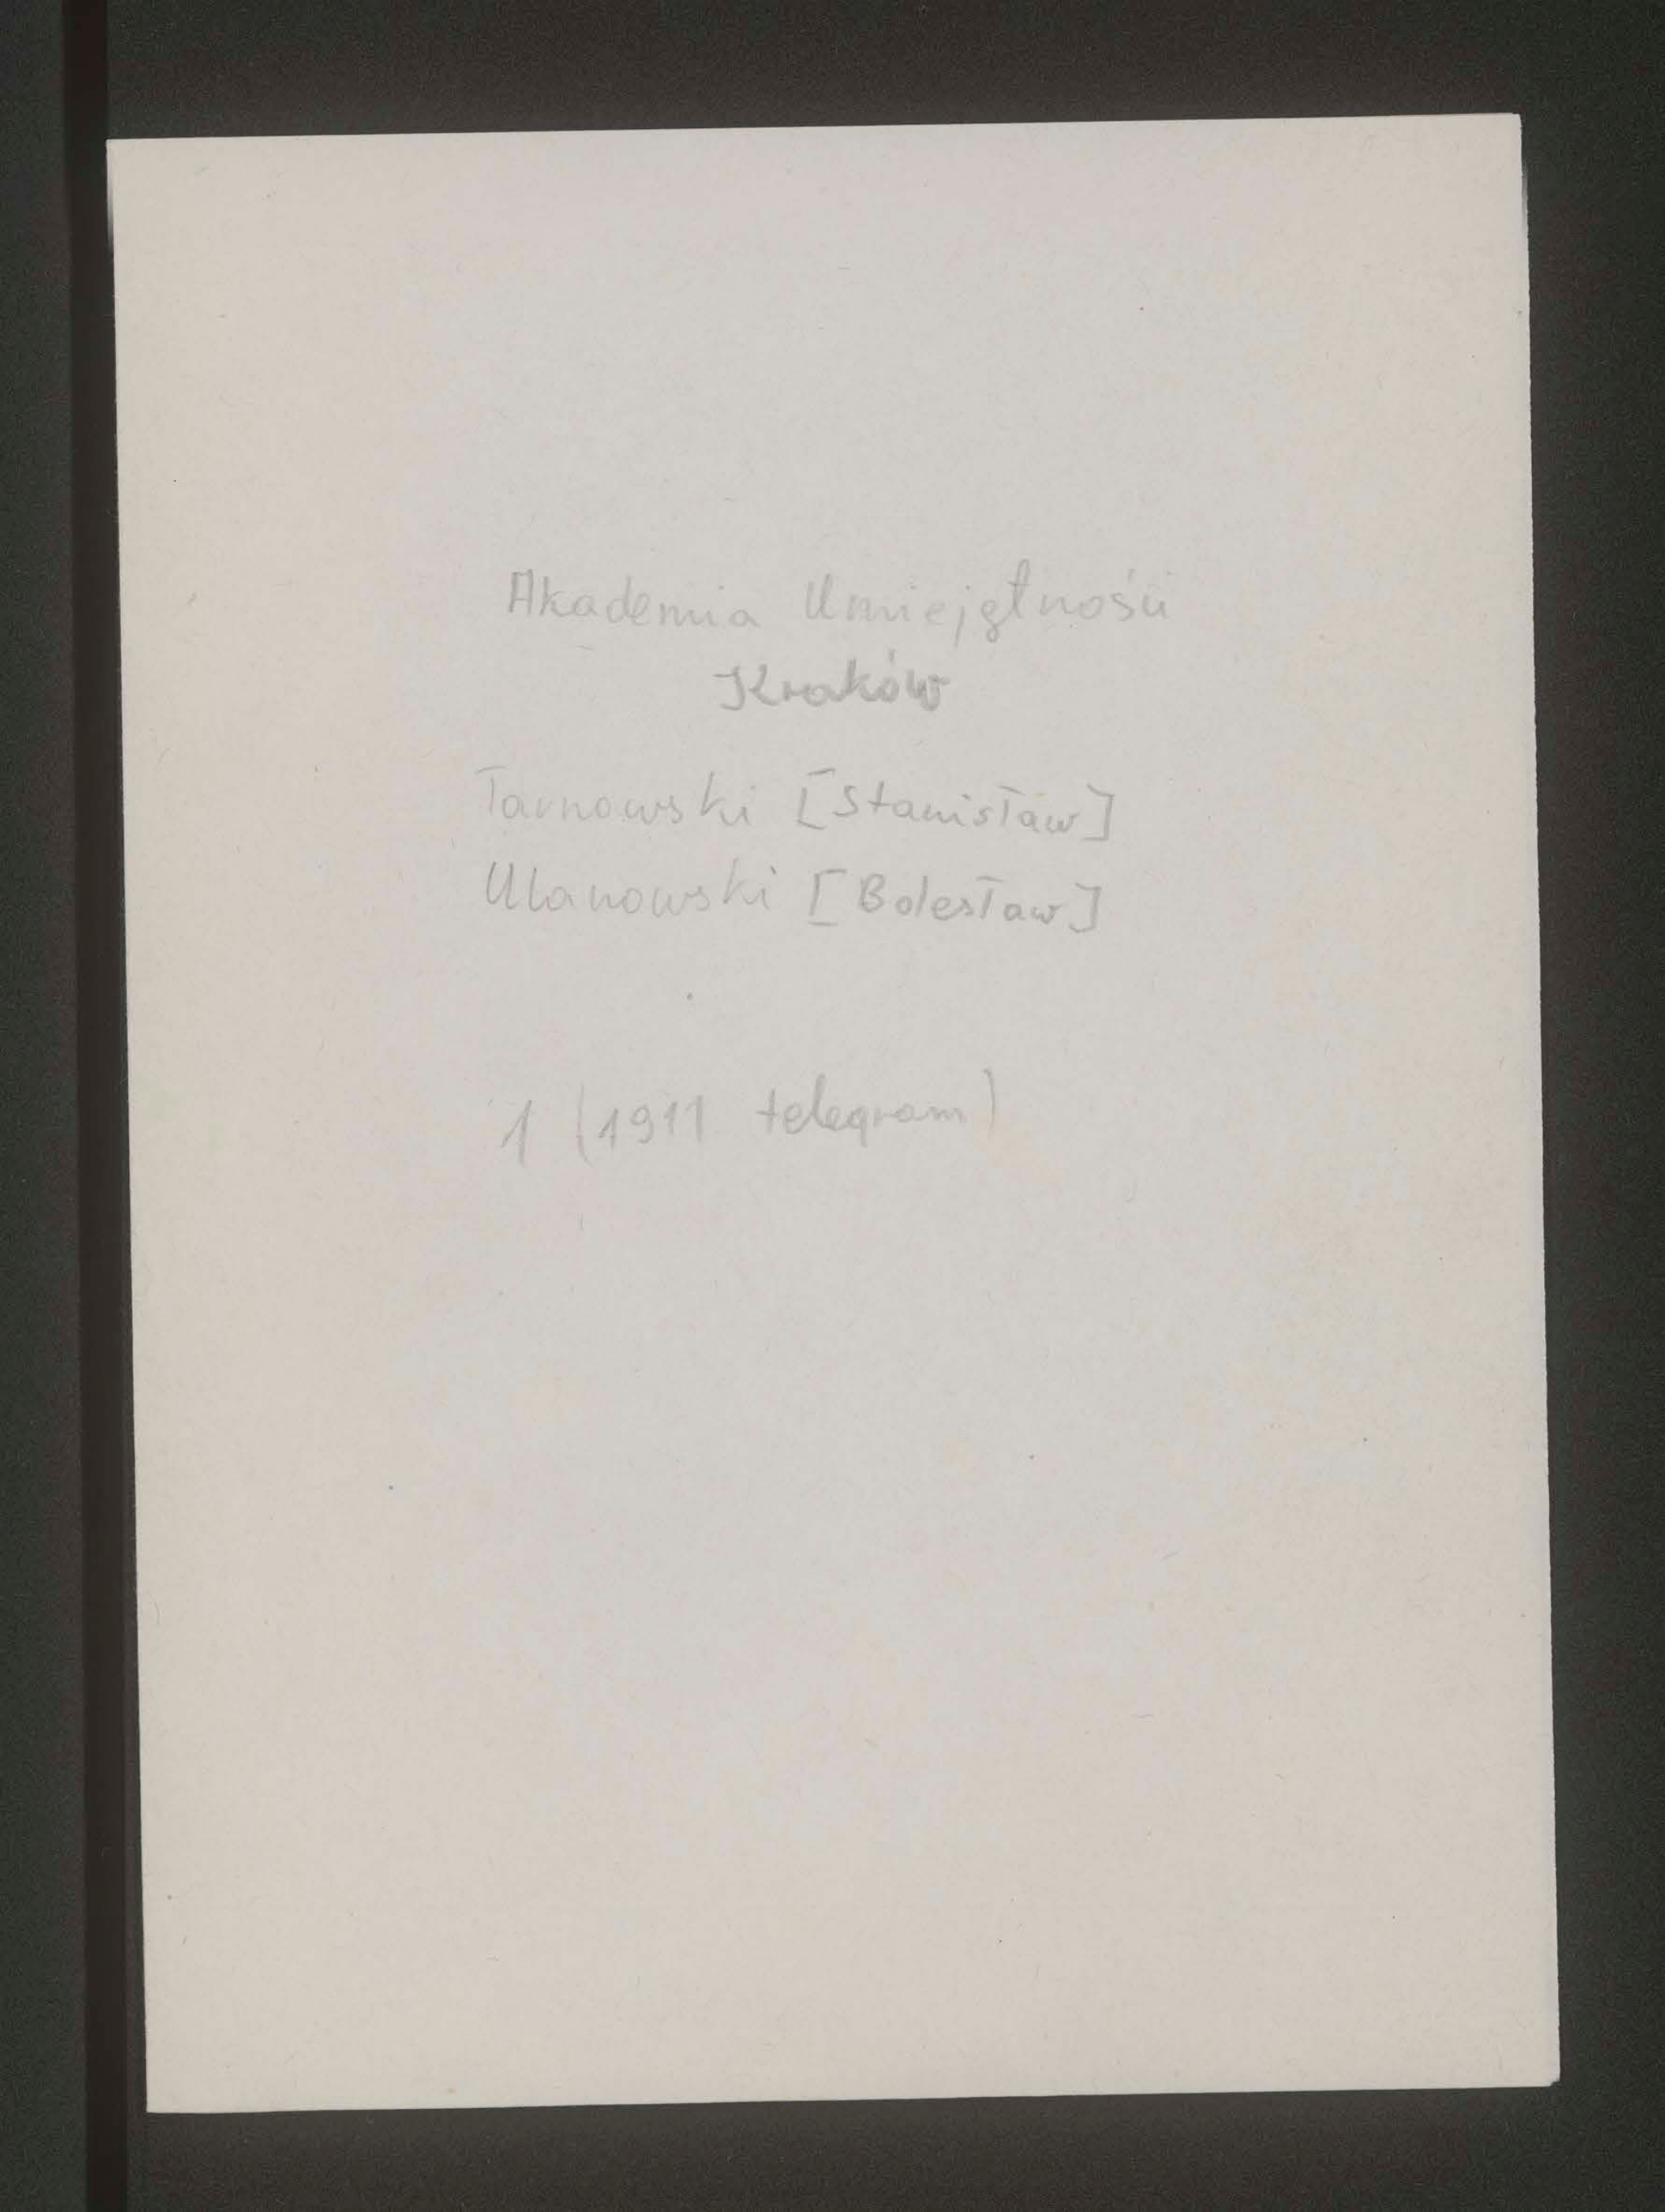 Akademia Umiejętności
Kraków
Tarnowski [Stanisław]
Ulanowski [Bolesław]
1 (1911 telegram)